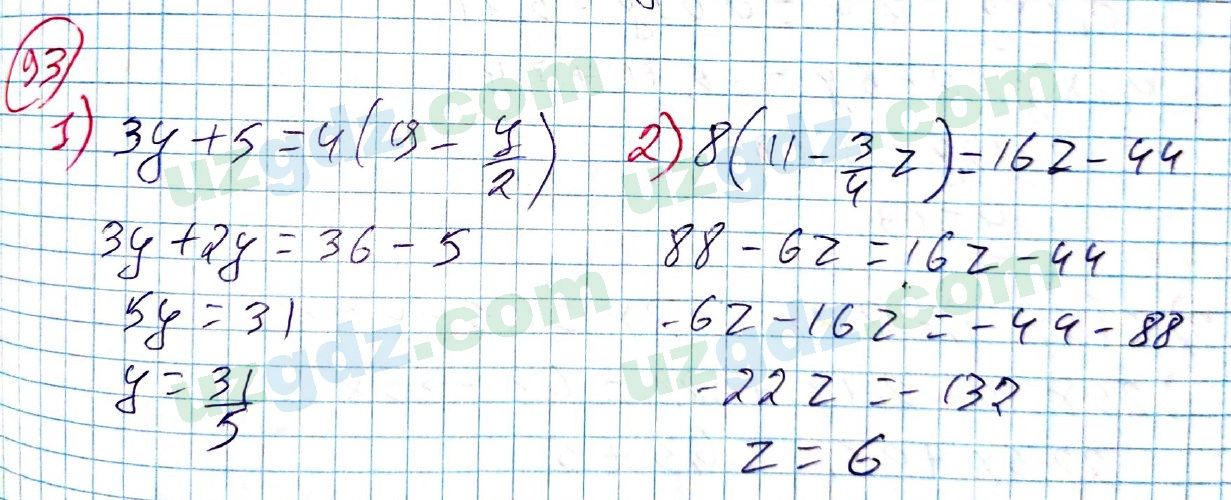 93
1) 3y + 5 = 4(9 - y/2)
3y + 2y = 36 - 5
5y = 31
y = 31/5
2) 8(11 - 3/4 z) = 16z - 44
88 - 6z = 16z - 44
-6z - 16z = -44 - 88
-22z = -132
z = 6
uzgdz.com
uzgdz.com
uzgdz.com
uzgdz.com